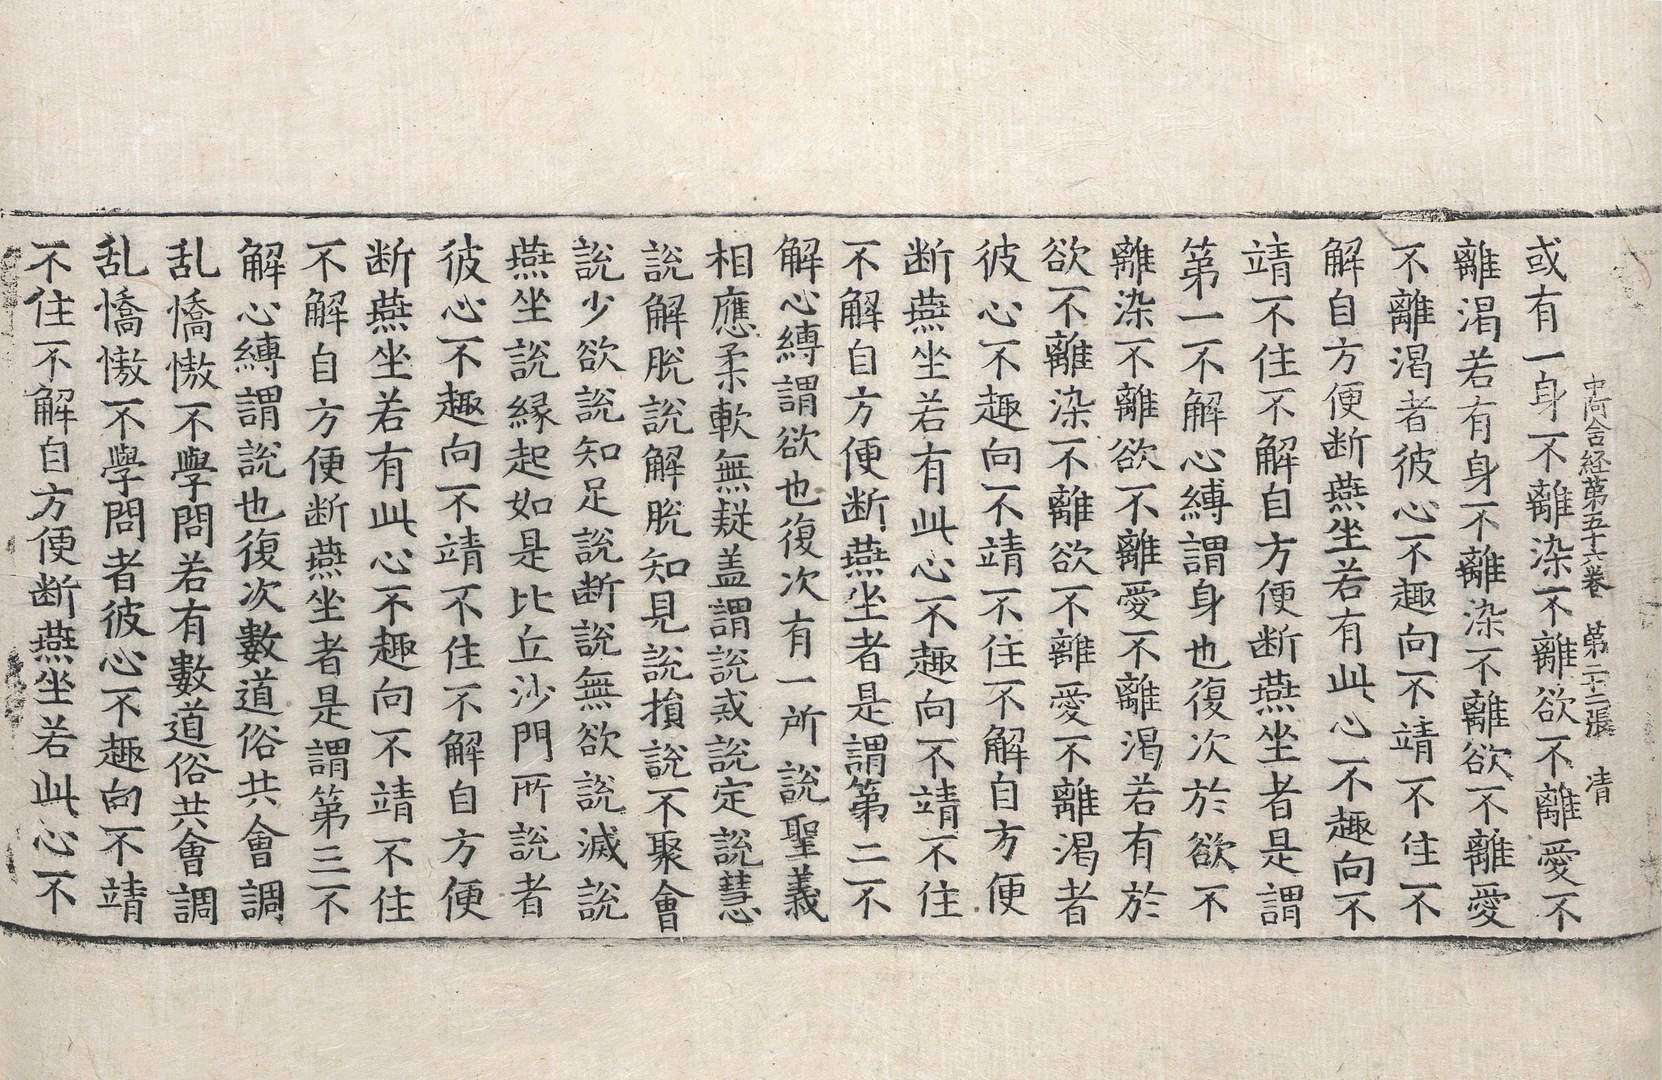 中阿含経第五十六卷 第二十二張 清
或有一身不離染不離欲不離愛不
離渇若有身不離染不離欲不離愛
不離渇者彼心不趣向不靖不住不
解自方便断燕坐若有此心不趣向不
靖不住不解自方便断燕坐者是謂
第一不解心縛謂身也復次於欲不
離染不離欲不離愛不離渇若有於
欲不離染不離欲不離愛不離渇者
彼心不趣向不靖不住不解自方便
断燕坐若有此心不趣向不靖不住
不解自方便断燕坐者是謂第二不
解心縛謂欲也復次有一所說聖義
相應柔軟無疑盖謂說戒說定說慧
說解脫說解脫知見說損說不聚會
說少欲說知足說断說無欲說滅說
燕坐說縁起如是比丘沙門所說者
彼心不趣向不靖不住不解自方便
断燕坐若有此心不趣向不靖不住
不解自方便断燕坐者是謂第三不
解心縛謂說也復次數道俗共會調
乱憍慠不學問若有數道俗共會調
乱憍慠不學問者彼心不趣向不靖
不住不解自方便断燕坐若此心不